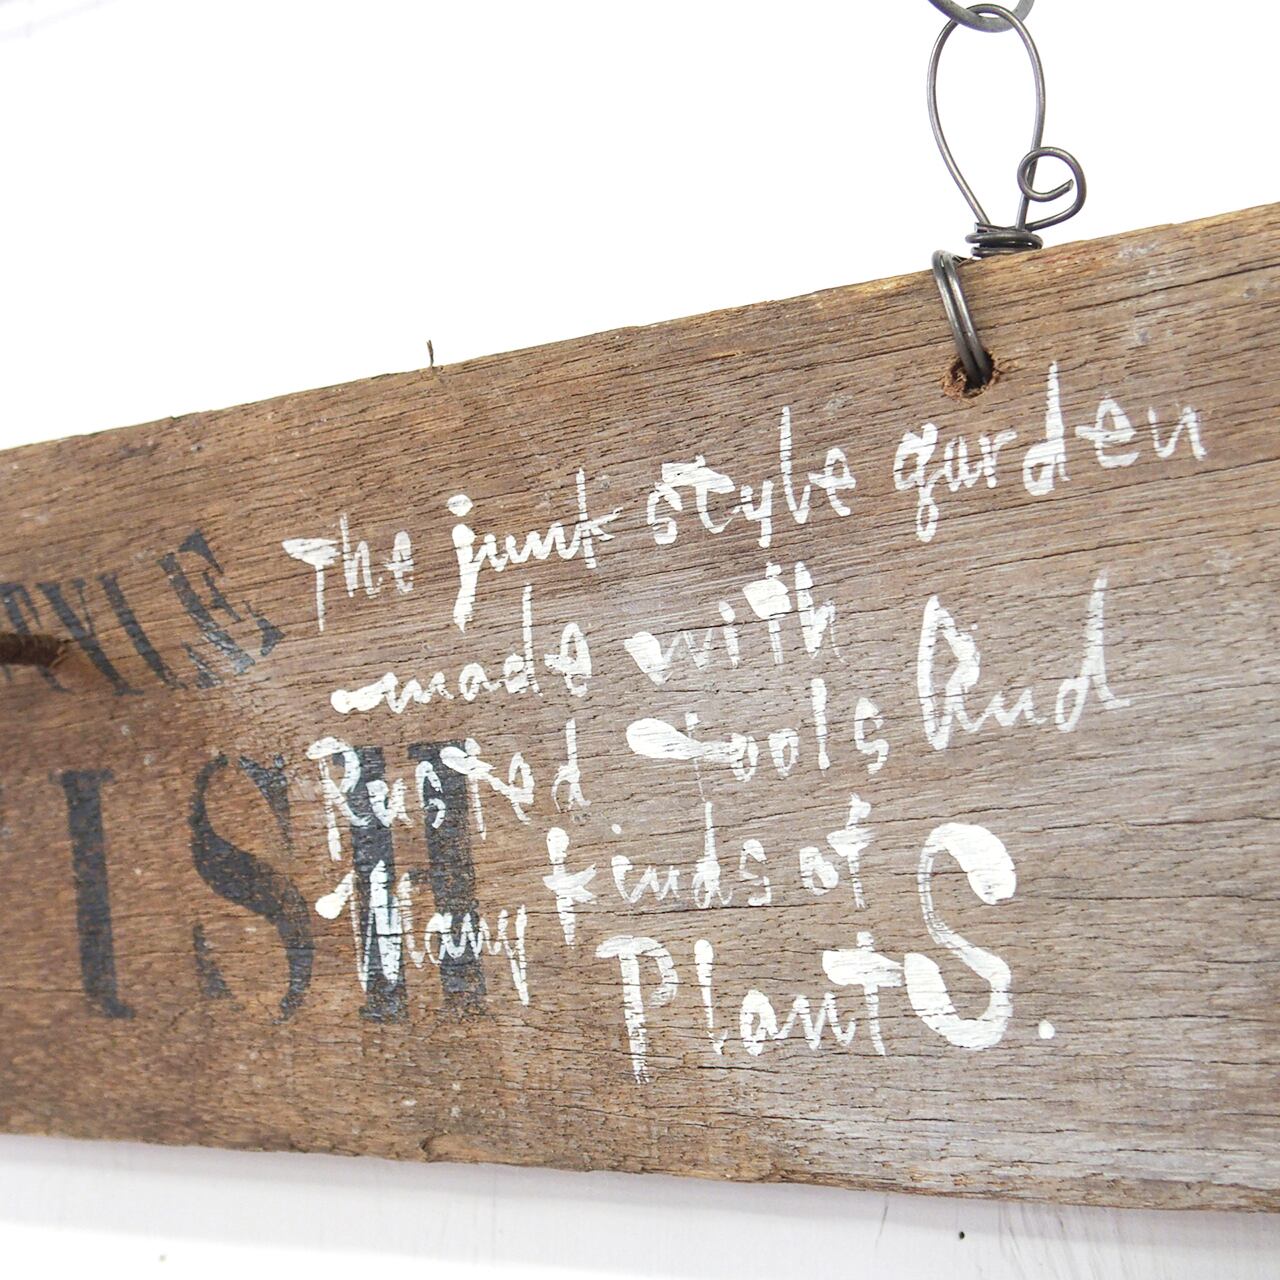 TYLE
ISH
The junk style garden
made with
Rusted Tools And
Many kinds of
PlanTS.